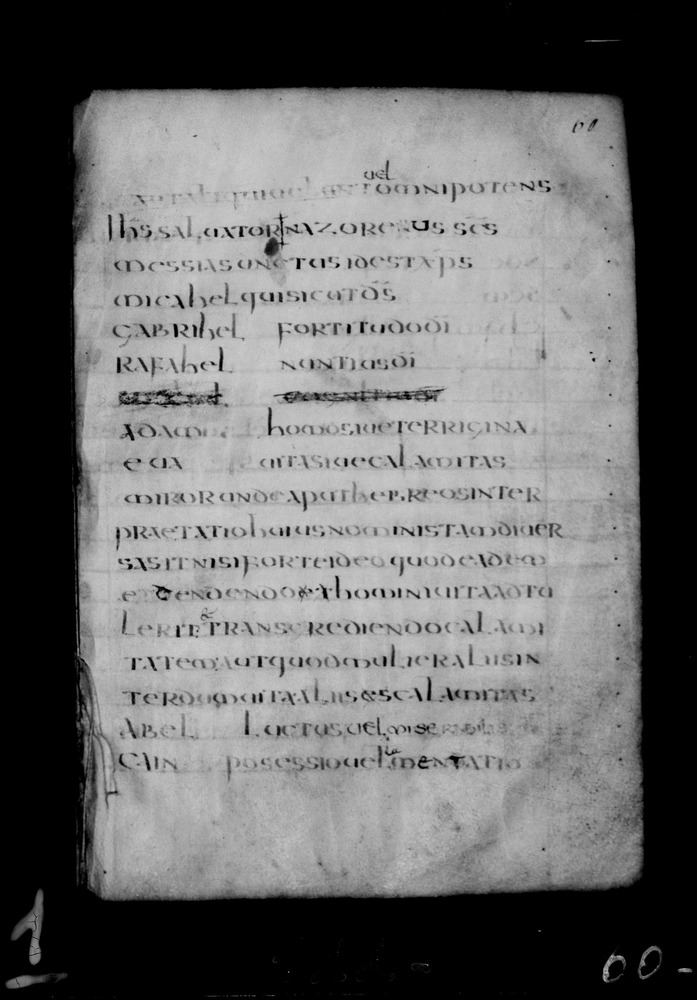 60
uel
omnipotens
Ihs saluator nazorenus scs
messias unctus id est xps
micahel qui sicut ds
gabrihel fortitudo di
rafahel nuntius di
adam homo siue terrigina
eua uita siue calamitas
miror unde aput hebreos inter
praetatio huius nominis tam diuer
sas it nisi forte ideo quod eadem
edendendo ex homini uita aotu
lerit et transgrediendo calami
tatem aut quod mulier aliis in
terdum uita aliis est calamitas
abel luctus uel miserabilis
cain posessio uel lamentatio
1
60-